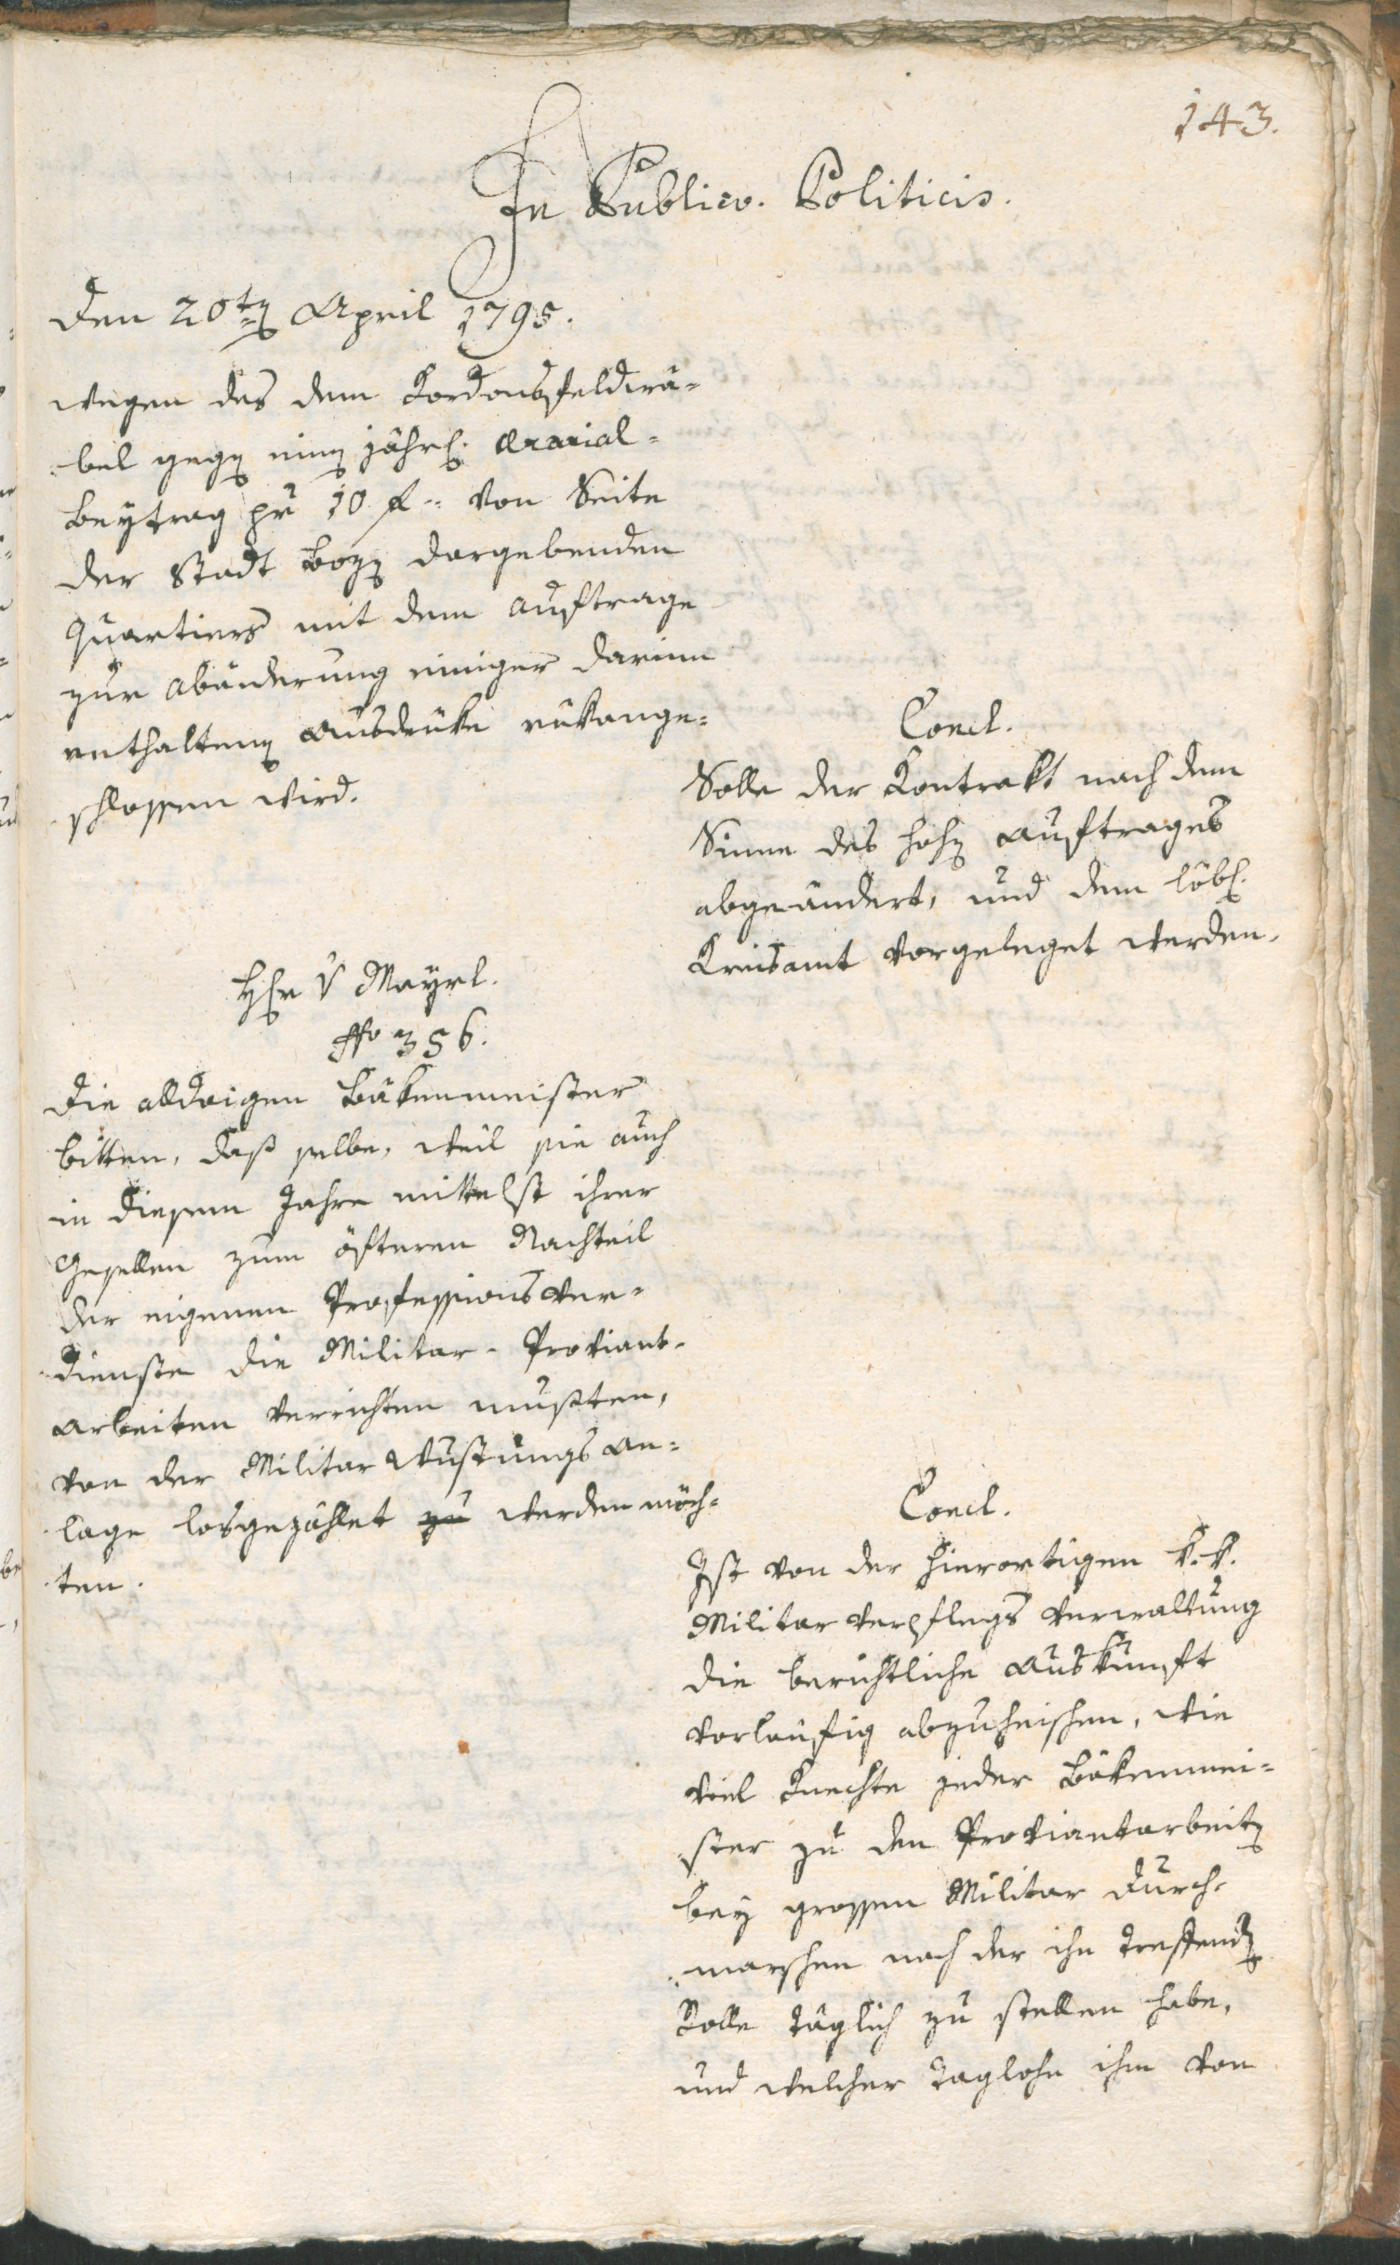 143.
In Publico. Politicis.
den 20ten April 1795.
wegen des dem Kordonsfeldwä-
bel gegen einen jährl. Ararial-
beytrag pr 10 f. von Seite
der Stadt Bozen dargebenden
Quartiers mit dem Auftrage
zur Abänderung einiger darinn
enthaltenen Ausdrüke rükange-
schlossen wird.
Concl.
Solle der Kontrakt nach dem
Sinne des hohen Auftrages
abgeändert, und dem löbl.
Kreisamt vorgeleget werden.
Hr v Mayrl.
No 356.
Die alldaigen Bäkenmeister
bitten, daß selbe, weil sie auch
in diesem Jahre mittelst ihrer
Gesellen zum öfteren Nachteil
der eigenen Professionsver-
dienste die Militar-Proviant-
arbeiten verrichten mußten,
von der Militar Wustungsan-
lage losgezählet zu werden möch-
ten.
Concl.
Ist von der hierortigen k. k.
Militar Verpflegs Verwaltung
die berichtliche Auskunft
vorläufig abzuheischen, wie
viel Knechte jeder Bäkenmei-
ster zu den Proviantarbeiten
bey grossen Militar durch-
marschen nach der ihn treffenden
Rolle täglich zu stellen habe,
und welcher Taglohn ihm von